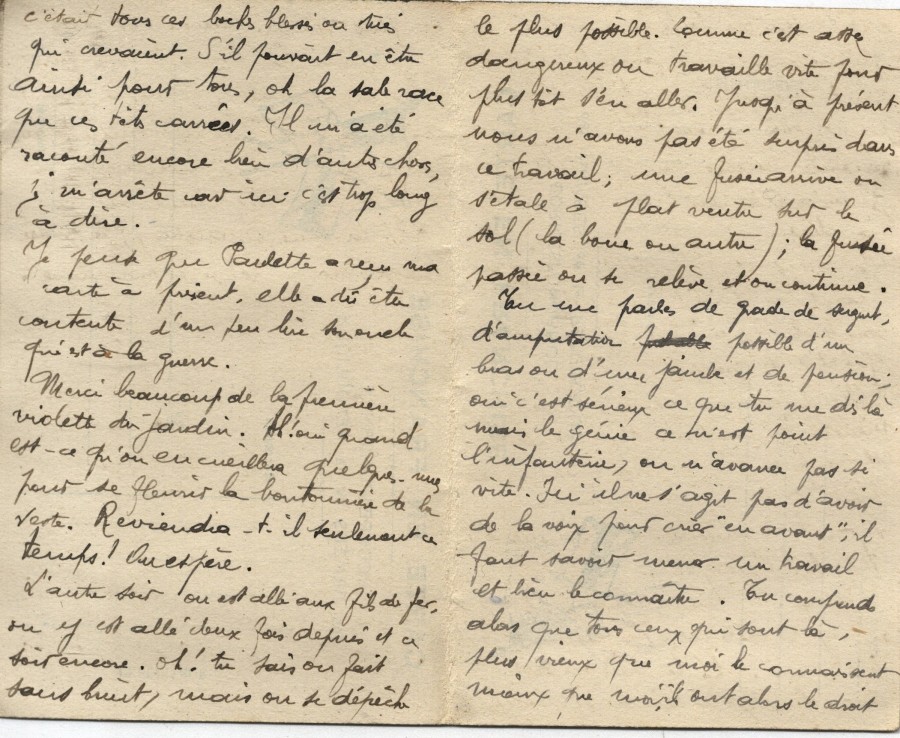 c'était tous ces boches blessés ou tués
qui crevaient. S'il pouvait en être
ainsi pour tous, oh la sale race
que ces têts carrées. Il m'a été
raconté encore bien d'autres choses,
j'm'arrête car ici c'est trop long
à dire.
Je pense que Paulette a reçu ma
carte à présent, elle a dû être
contente d'un peu lire son oncle
qui est à la guerre.
Merci beaucoup de la première
violette du jardin. Ah! oui quand
est-ce qu'on en cueillera quelques-unes
pour se fleurir la boutonnière de la
veste. Reviendra-t-il seulement ce
temps! On espère.
L'autre soir on est allé aux fils de fer,
on y est allé deux fois depuis et ce
soir encore. Oh! tu sais on fait
sans bruit, mais on se dépêche
le plus possible. Comme c'est assez
dangereux on travaille vite pour
plus tôt s'en aller. Jusqu'à présent
nous n'avons pas été surpris dans
ce travail; une fusée arrive on
s'étale à plat ventre sur le
sol (la boue ou autre); la fusée
passée on se relève et on continue.
Tu me parles de grade de sergent,
d'amputation possible d'un
bras ou d'une jambe et de pension;
oui c'est sérieux ce que tu me dis là
mais le génie ce n'est point
l'infanterie, on n'avance pas si
vite. Ici il ne s'agit pas d'avoir
de la voix pour crier "en avant"; il
faut savoir mener un travail
et bien le connaître. Tu comprends
alors que tous ceux qui sont là,
plus vieux que moi le connaissent
mieux que moi, ils ont alors le droit